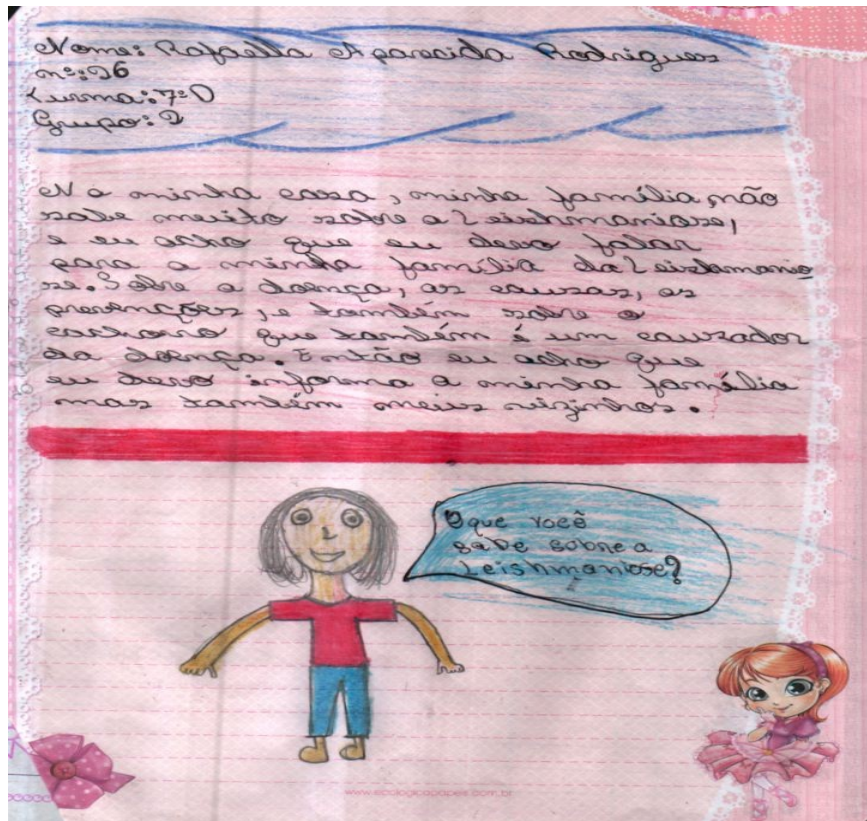 Nome: Rafaella Aparecida Rodrigues
nº:26
Turma:7ºD
Grupo: 2
Na minha casa, minha família não
sabe muito sobre a Leishmaniose,
e eu acho que eu devo falar
para a minha família da Leishmanio
se. Sobre a doença, as causas, as
prevenções, e também sobre o
cachorro que também é um causador
da doença. Então eu acho que
eu devo informa a minha família
mas também meus vizinhos.
O que você
sabe sobre a
Leishmaniose?
www.ecologicapapeis.com.br